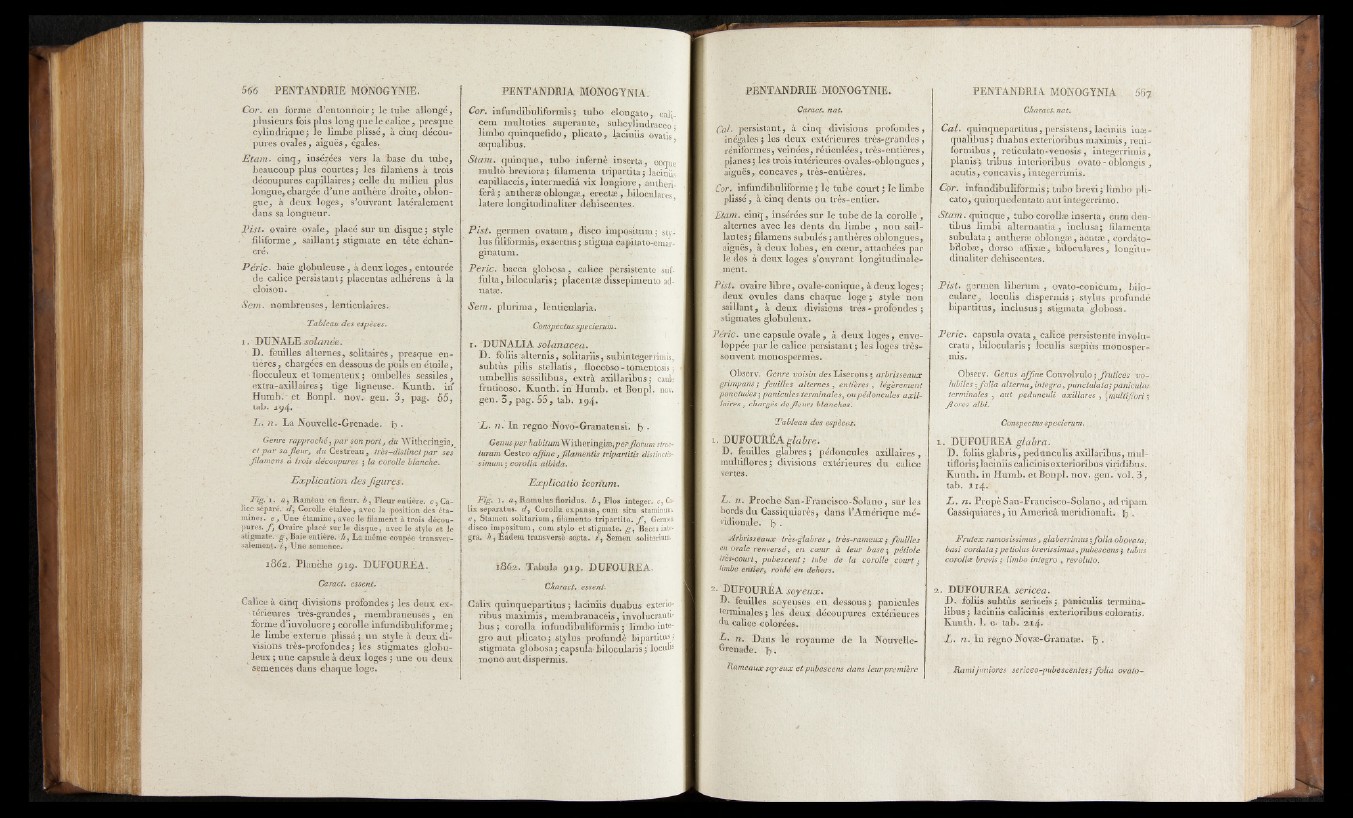 566 PENTANDRIE MONOGYNIE.
Cor. en forme d'entonnoir; le tube allongé,
plusieurs fois plus long que le calice, presque
cylindrique; le limbe plissé, à cinq décou-
pures ovales, aiguës, égales.
Etam. cinq, insérées vers la base du tube,
beaucoup plus courtes; les filamens à trois
découpures capillaires; celle du milieu plus
longue, chargée d'une anthère droite, oblon-
gue, à deux loges, s'ouvrant latéralement
dans sa longueur.
Pist. ovaire ovale, placé sur un disque; style
filiforme, saillant; stigmate en tête échan-
cré.
Péric. baie globuleuse, à deux loges, entourée
de calice persistant; placentas adhérens à la
cloison.
Sem. nombreuses, lenticulaires.
Tableau des espèces.
1. DUNALE solanée.
D. feuilles alternes, solitairès, presque en-
tières, chargées en dessous de poils en étoile,
flocculeux et tomenteux; ombelles sessiles,
extra-axillaires; tige ligneuse. Kunth. in
Humb. et Bonpl. nov. gen. 3, pag. 55,
tab. 194.
L. n. La Nouvelle-Grenade. ♄.
Genre rapproché, par son port, du Witheringia,
et par sa fleur, du Cestreau, très-distinct par ses
filamens à trois découpures; la corolle blanche.
Explication des figures.
Fig. 1. a, Rameau en fleur. b, Fleur entière. c, Ca-
lice séparé. d, Corolle étalée, avec la position des éta-
mines. e, Une étamine, avec le filament à trois décou-
pures. f, Ovaire placé sur le disque, avec le style et le
stigmate. g, Baie entière. h, La même coupée transver-
salement. i, Une semence.
1862. Planche 919. DUFOURÉA.
Caract. essent.
Calice à cinq divisions profondes; les deux ex-
térieures très-grandes, membraneuses, en
forme d'involucre; corolle infundibuliforme;
le limbe externe plissé; un style à deux di-
visions très-profondes; les stigmates globu-
leux; une capsule à deux loges; une ou deux
semences dans chaque loge.
PENTANDRIA MONOGYNIA.
Cor. infundibuliformis; tubo elongato, cali-
cem multoties superante, subcylindraceo;
limbo quinquefido, plicato, laciniis ovatis,
æqualibus.
Stam. quinque, tubo infernè inserta, eoque
multò breviora; filamenta tripartita; laciniis
capillaceis, intermediâ vix longiore, antheri-
ferâ; antheræ oblongæ, erectæ, biloculares,
latere longitudinaliter dehiscentes.
Pist. germen ovatum, disco impositum; sty-
lus filiformis, exsertus; stigma capitato-emar-
ginatum.
Peric. bacca globosa, calice persistente suf-
fulta, bilocularis; placentæ dissepimento ad-
natæ.
Sem. plurima, lenticularia.
Conspectus specierum.
1. DUNALIA solanacea.
D. foliis alternis, solitariis, subintegerrimis,
subtùs pilis stellatis, floccoso-tomentosis;
umbellis sessilibus, extrà axillaribus; caule
fruticoso. Kunth. in Humb. et Bonpl. nov.
gen. 3, pag. 55, tab. 194.
L. n. In regno Novo-Granatensi. ♄.
Genus per habitum Witheringiæ, per florum struc-
turam Cestro affine, filamentis tripartitis distinctis-
simum; corolla albida.
Explicatio iconum.
Fig. 1. a, Ramulus floridus. b, Flos integer. c, Ca-
lix separatus. d, Corolla expansa, cum situ staminum.
e, Stamen solitarium, filamento tripartito. f, Germen
disco impositum, cum stylo et stigmate. g, Bacca inte-
gra. h, Eadem transversè secta. i, Semen solitarium.
1862. Tabula 919. DUFOUREA.
Charact. essent.
Calix quinquepartitus; laciniis duabus exterio-
ribus maximis, membranaceis, involucranti-
bus; corolla infundibuliformis; limbo inte-
gro aut plicato; stylus profundè bipartitus;
stigmata globosa; capsula bilocularis; loculis
mono aut dispermis.
PENTANDRIE MONOGYNIE.
Caract. nat.
Cal. persistant, à cinq divisions profondes,
inégales; les deux extérieures très-grandes,
réniformes, veinées, réticulées, très-entières,
planes; les trois intérieures ovales-oblongues,
aiguës, concaves, très-entières.
Cor. infundibuliforme; le tube court; le limbe
plissé, à cinq dents ou très-entier.
Etam. cinq, insérées sur le tube de la corolle,
alternes avec les dents du limbe, non sail-
lantes; filamens subulés; anthères oblongues,
aiguës, à deux lobes, en cœur, attachées par
le dos à deux loges s'ouvrant longitudinale-
ment.
Pist. ovaire libre, ovale-conique, à deux loges;
deux ovules dans chaque loge; style non
saillant, à deux divisions très-profondes;
stigmates globuleux.
Péric. une capsule ovale, à deux loges, enve-
loppée par le calice persistant; les loges très-
souvent monospermes.
Observ. Genre voisin des Liserons; arbrisseaux
grimpans; feuilles alternes, entières, légèrement
ponctuées; panicules terminales, ou pédoncules axil-
laires, chargés de fleurs blanches.
Tableau des espèces.
1. DUFOURÉA glabre.
D. feuilles glabres; pédoncules axillaires,
multiflores; divisions extérieures du calice
vertes.
L. n. Proche San-Francisco-Solano, sur les
bords du Cassiquiarès, dans l'Amérique mé-
ridionale. ♄.
Arbrisseaux très-glabres, très-rameux; feuilles
en ovale renversé, en cœur à leur base; pétiole
très-court, pubescent; tube de la corolle court;
limbe entier, roulé en dehors.
2. DUFOURÉA soyeux.
D. feuilles soyeuses en dessous; panicules
terminales; les deux découpures extérieures
du calice colorées.
L. n. Dans le royaume de la Nouvelle-
Grenade. ♄.
Rameaux soyeux et pubescens dans leur première
PENTANDRIA MONOGYNIA. 567
Charact. nat.
Cal. quinquepartitus, persistens, laciniis inæ-
qualibus; duabus exterioribus maximis, reni-
formibus, reticulato-venosis, integerrimis,
planis; tribus interioribus ovato-oblongis,
acutis, concavis, integerrimis.
Cor. infundibuliformis; tubo brevi; limbo pli-
cato, quinquedentato aut integerrimo.
Stam. quinque, tubo corollæ inserta, cum den-
tibus limbi alternantia, inclusa; filamenta
subulata; antheræ oblongæ, acutæ, cordato-
bilobæ, dorso affixæ, biloculares, longitu-
dinaliter dehiscentes.
Pist. germen liberum, ovato-conicum, bilo-
culare, loculis dispermis; stylus profundè
bipartitus, inclusus; stigmata globosa.
Peric. capsula ovata, calice persistente involu-
crata, bilocularis; loculis sæpiùs monosper-
mis.
Observ. Genus affine Convolvulo; frutices vo-
lubiles; folia alterna, integra, punctulata; paniculæ
terminales, aut pedunculi axillares, multiflori;
flores albi.
Conspectus specierum.
1. DUFOUREA glabra.
D. foliis glabris, pedunculis axillaribus, mul-
tifloris; laciniis calicinis exterioribus viridibus.
Kunth. in Humb. et Bonpl. nov. gen. vol. 3,
tab. 214.
L. n. Propè San-Francisco-Solano, ad ripam
Cassiquiares, in Americâ meridionali. ♄.
Frutex ramosissimus, glaberrimus; folia obovata,
basi cordata; petiolus brevissimus, pubescens; tubus
corollæ brevis; limbo integro, revoluto.
2. DUFOUREA sericea.
D. foliis subtùs sericeis; paniculis termina-
libus; laciniis calicinis exterioribus coloratis.
Kunth. l. c. tab. 214.
L. n. In regno Novæ-Granatæ. ♄.
Rami juniores sericeo-pubescentes; folia ovato-